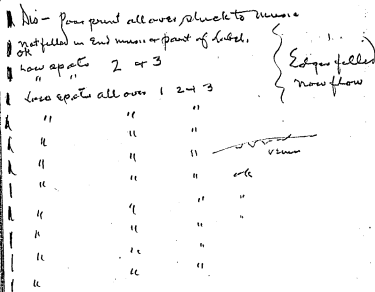 Dis - Poor print all over stuck to music
Not filled in End music or part of Label.
ok
Low spots 2 & 3
" "
Low spots all over 1 2 & 3
Edges filled
now flow
" " "
" " "
" " "
" " "
" " " ok
" "
" " "
" " "
" " "
"